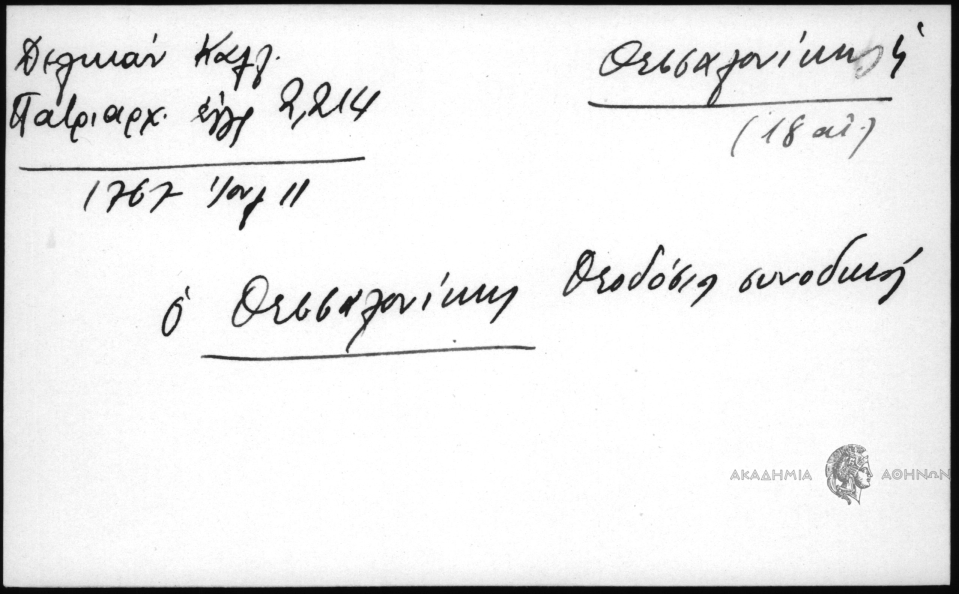 Δελικάν Καλλ.
Πατριαρχ. ἔγγρ 2,214
1767 Ἰουλ 11
Θεσσαλονίκη ἡ
(18 αἰ.)
ὁ Θεσσαλονίκης Θεοδόσιος συνοδικῶς
ΑΚΑΔΗΜΙΑ ΑΘΗΝΩΝ